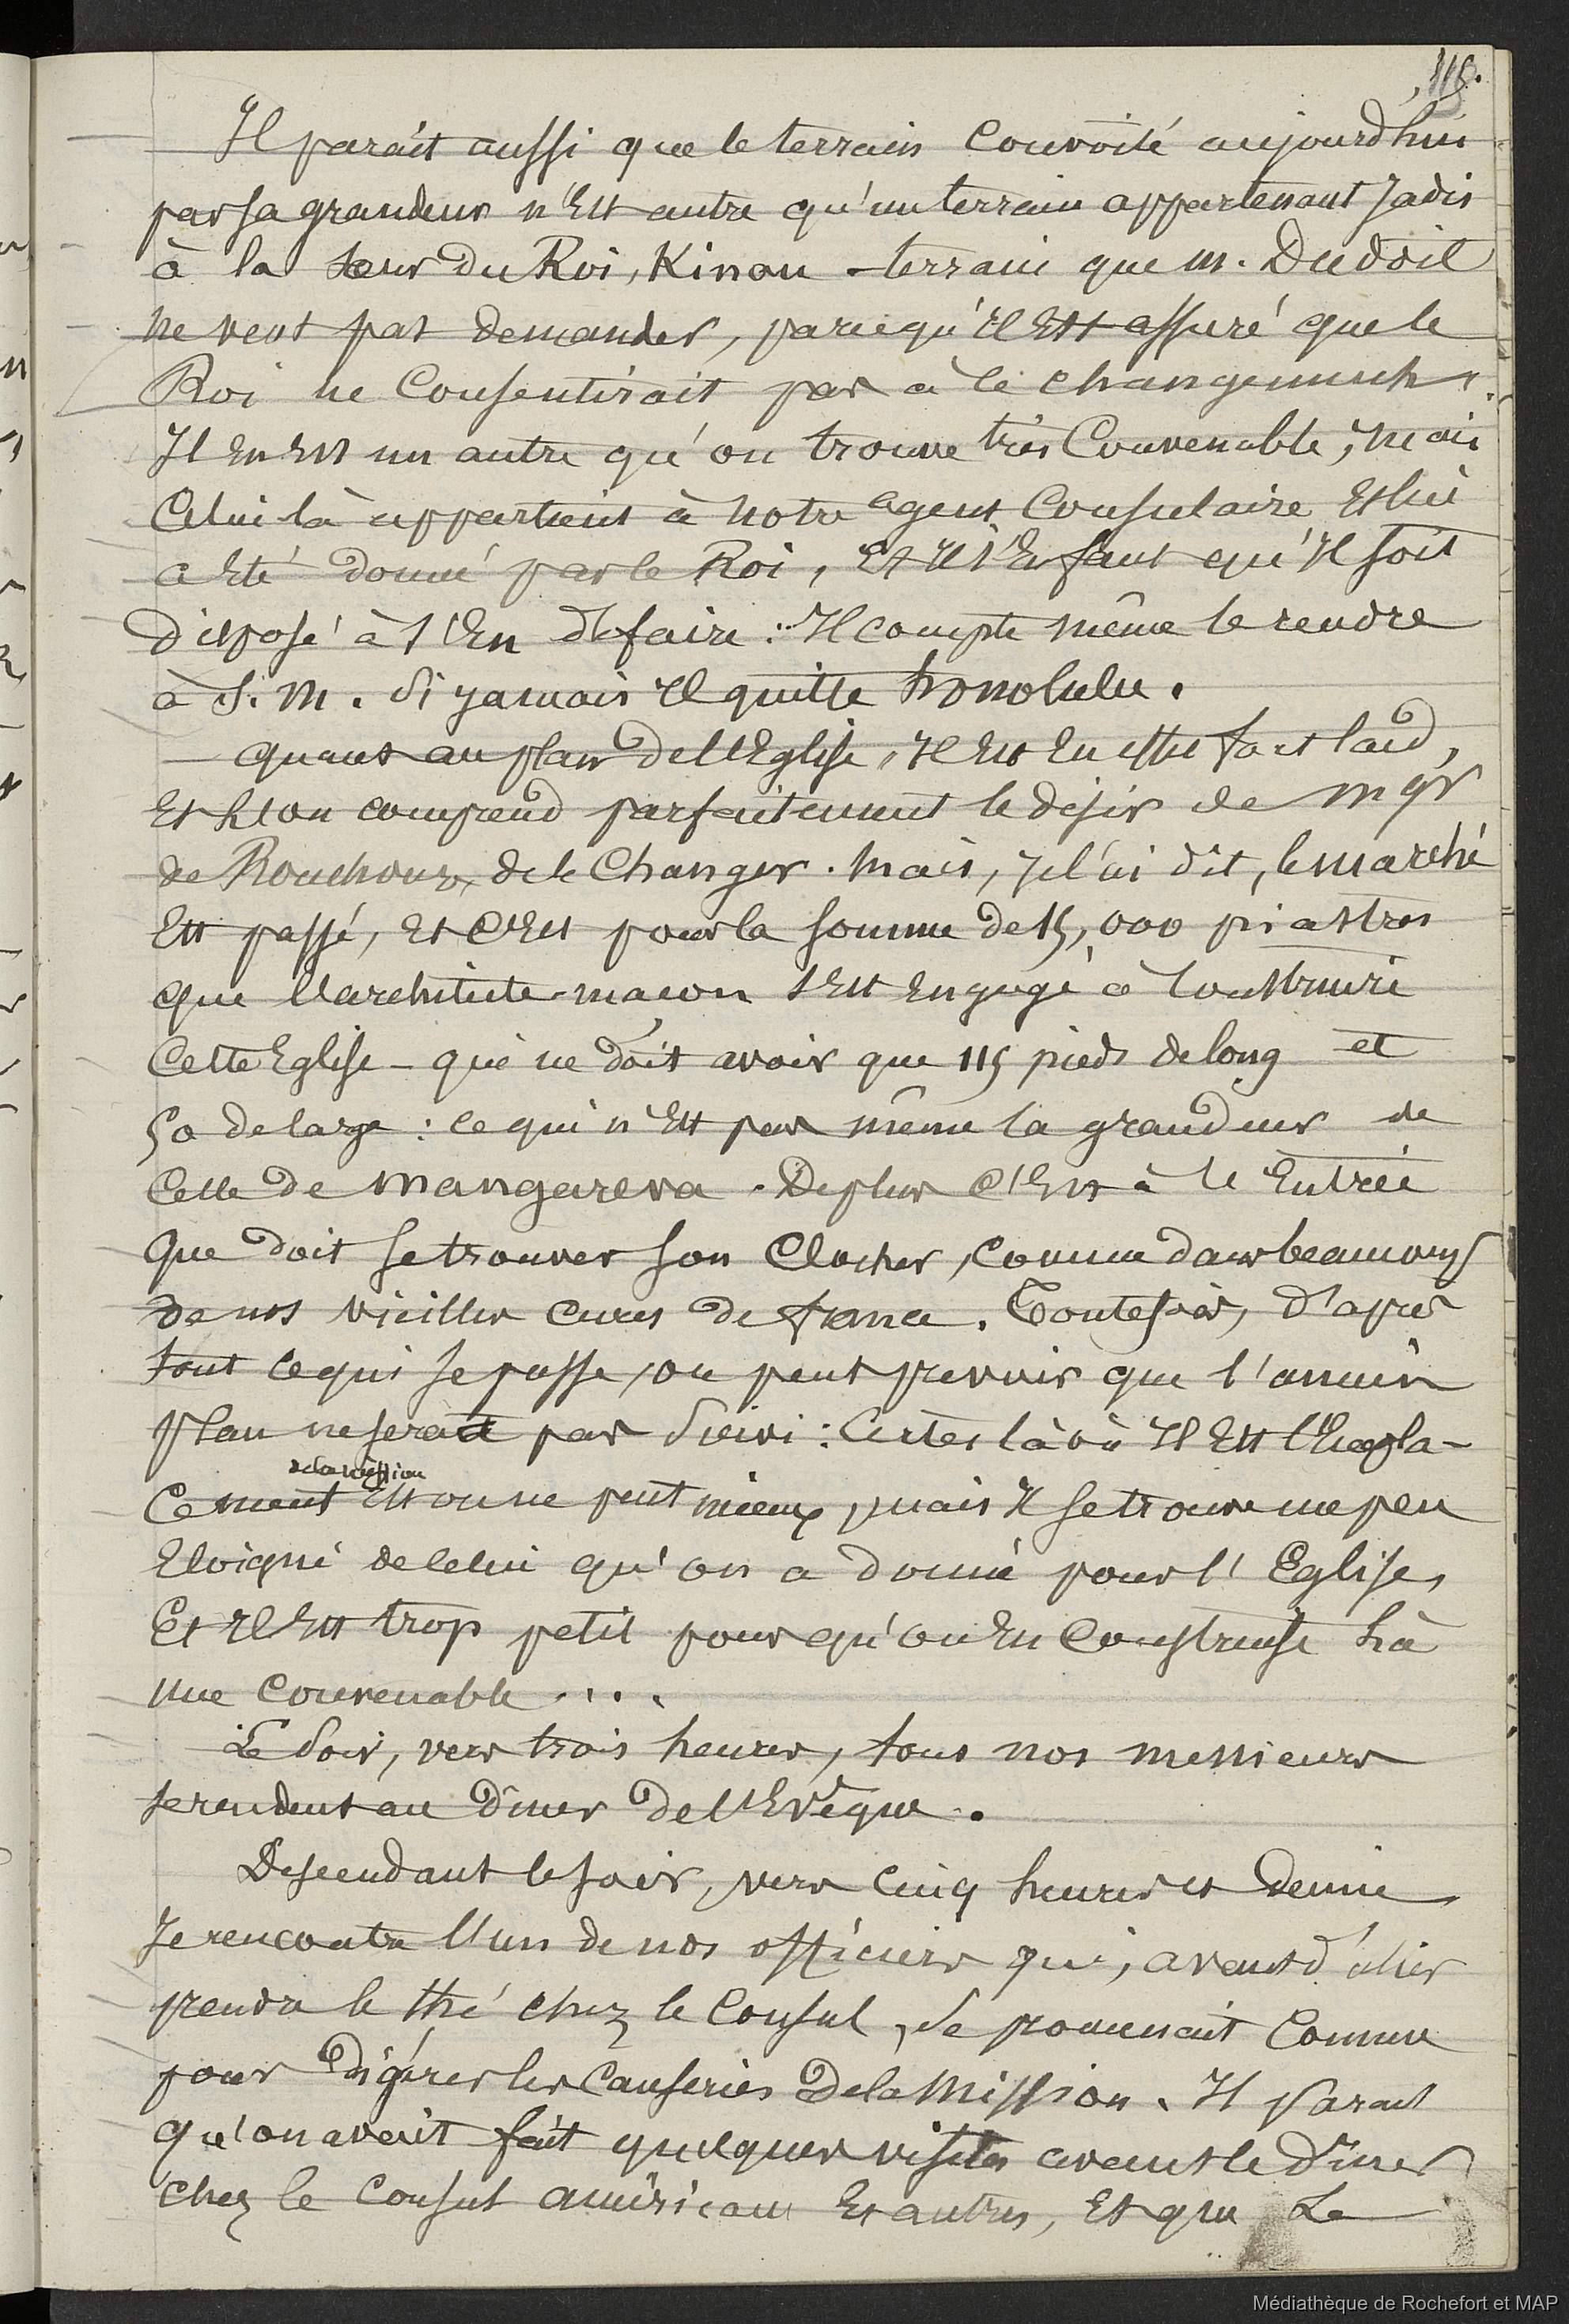 115.
Il parait aussi que le terrain Convoité aujourd'hui
par Sa grandeur n'Est autre qu'un terrain appartenant Jadis
à la soeur du Roi, Kinau - terrain que m. Dudoit
ne veut pas demander, parcequ'Il Est assuré que le
Roi ne Consentirait pas à ce changement.
Il En Est un autre qu'on trouve très Convenable, mais
Celui là appartient à notre agent Consulaire Et lui
a Eté donné par le Roi, Et Il s'En faut qu'Il soit
disposé à s'En défaire : Il compte même le rendre
à S. M. Si jamais Il quitte honolulu.
- quant au plan de l'Eglise, Il Est En effet fort laid,
Et l'on comprend parfaitement le désir de mgr
de Rouchouze, de le Changer. Mais, je l'ai dit, le marché
Est passé, Et C'Est pour la somme de 15,000 piastres
que l'architecte-macon s'Est Engagé à Construire
Cette Eglise - qui ne doit avoir que 115 pieds de long et
50 de large : ce qui n'Est pas même la grandeur de
Celle de Mangareva. De plus C'Est à l'Entrée
Que doit se trouver son Clocher, comme dans beaucoup
de nos vieilles cures de france. Toutefois, d'après
tout ce qui se passe, on peut prevoir que l'ancien
plan ne serait pas Suivi : Certes là où Il Est l'Empla-
de la mission
Cement Est on ne peut mieux, mais Il se trouve un peu
Eloigné de Celui qu'on a donné pour l'Eglise,
Et Il Est trop petit pour qu'on En Construise là
une Convenable ....
Le Soir, vers trois heures, tous nos messieurs
se rendent au dîner de l'Evêque.
Descendant le soir, vers Cinq heures et demie
Je rencontre l'un de nos officiers qui, avant d'aller
prendre le thé chez le Consul, se promenait Comme
pour digérer les Causeries de la Mission. Il parait
qu'on avait fait quelques visites avant le dîner
chez le Consul américain Et autres, Et que Le
Médiathèque de Rochefort et MAP